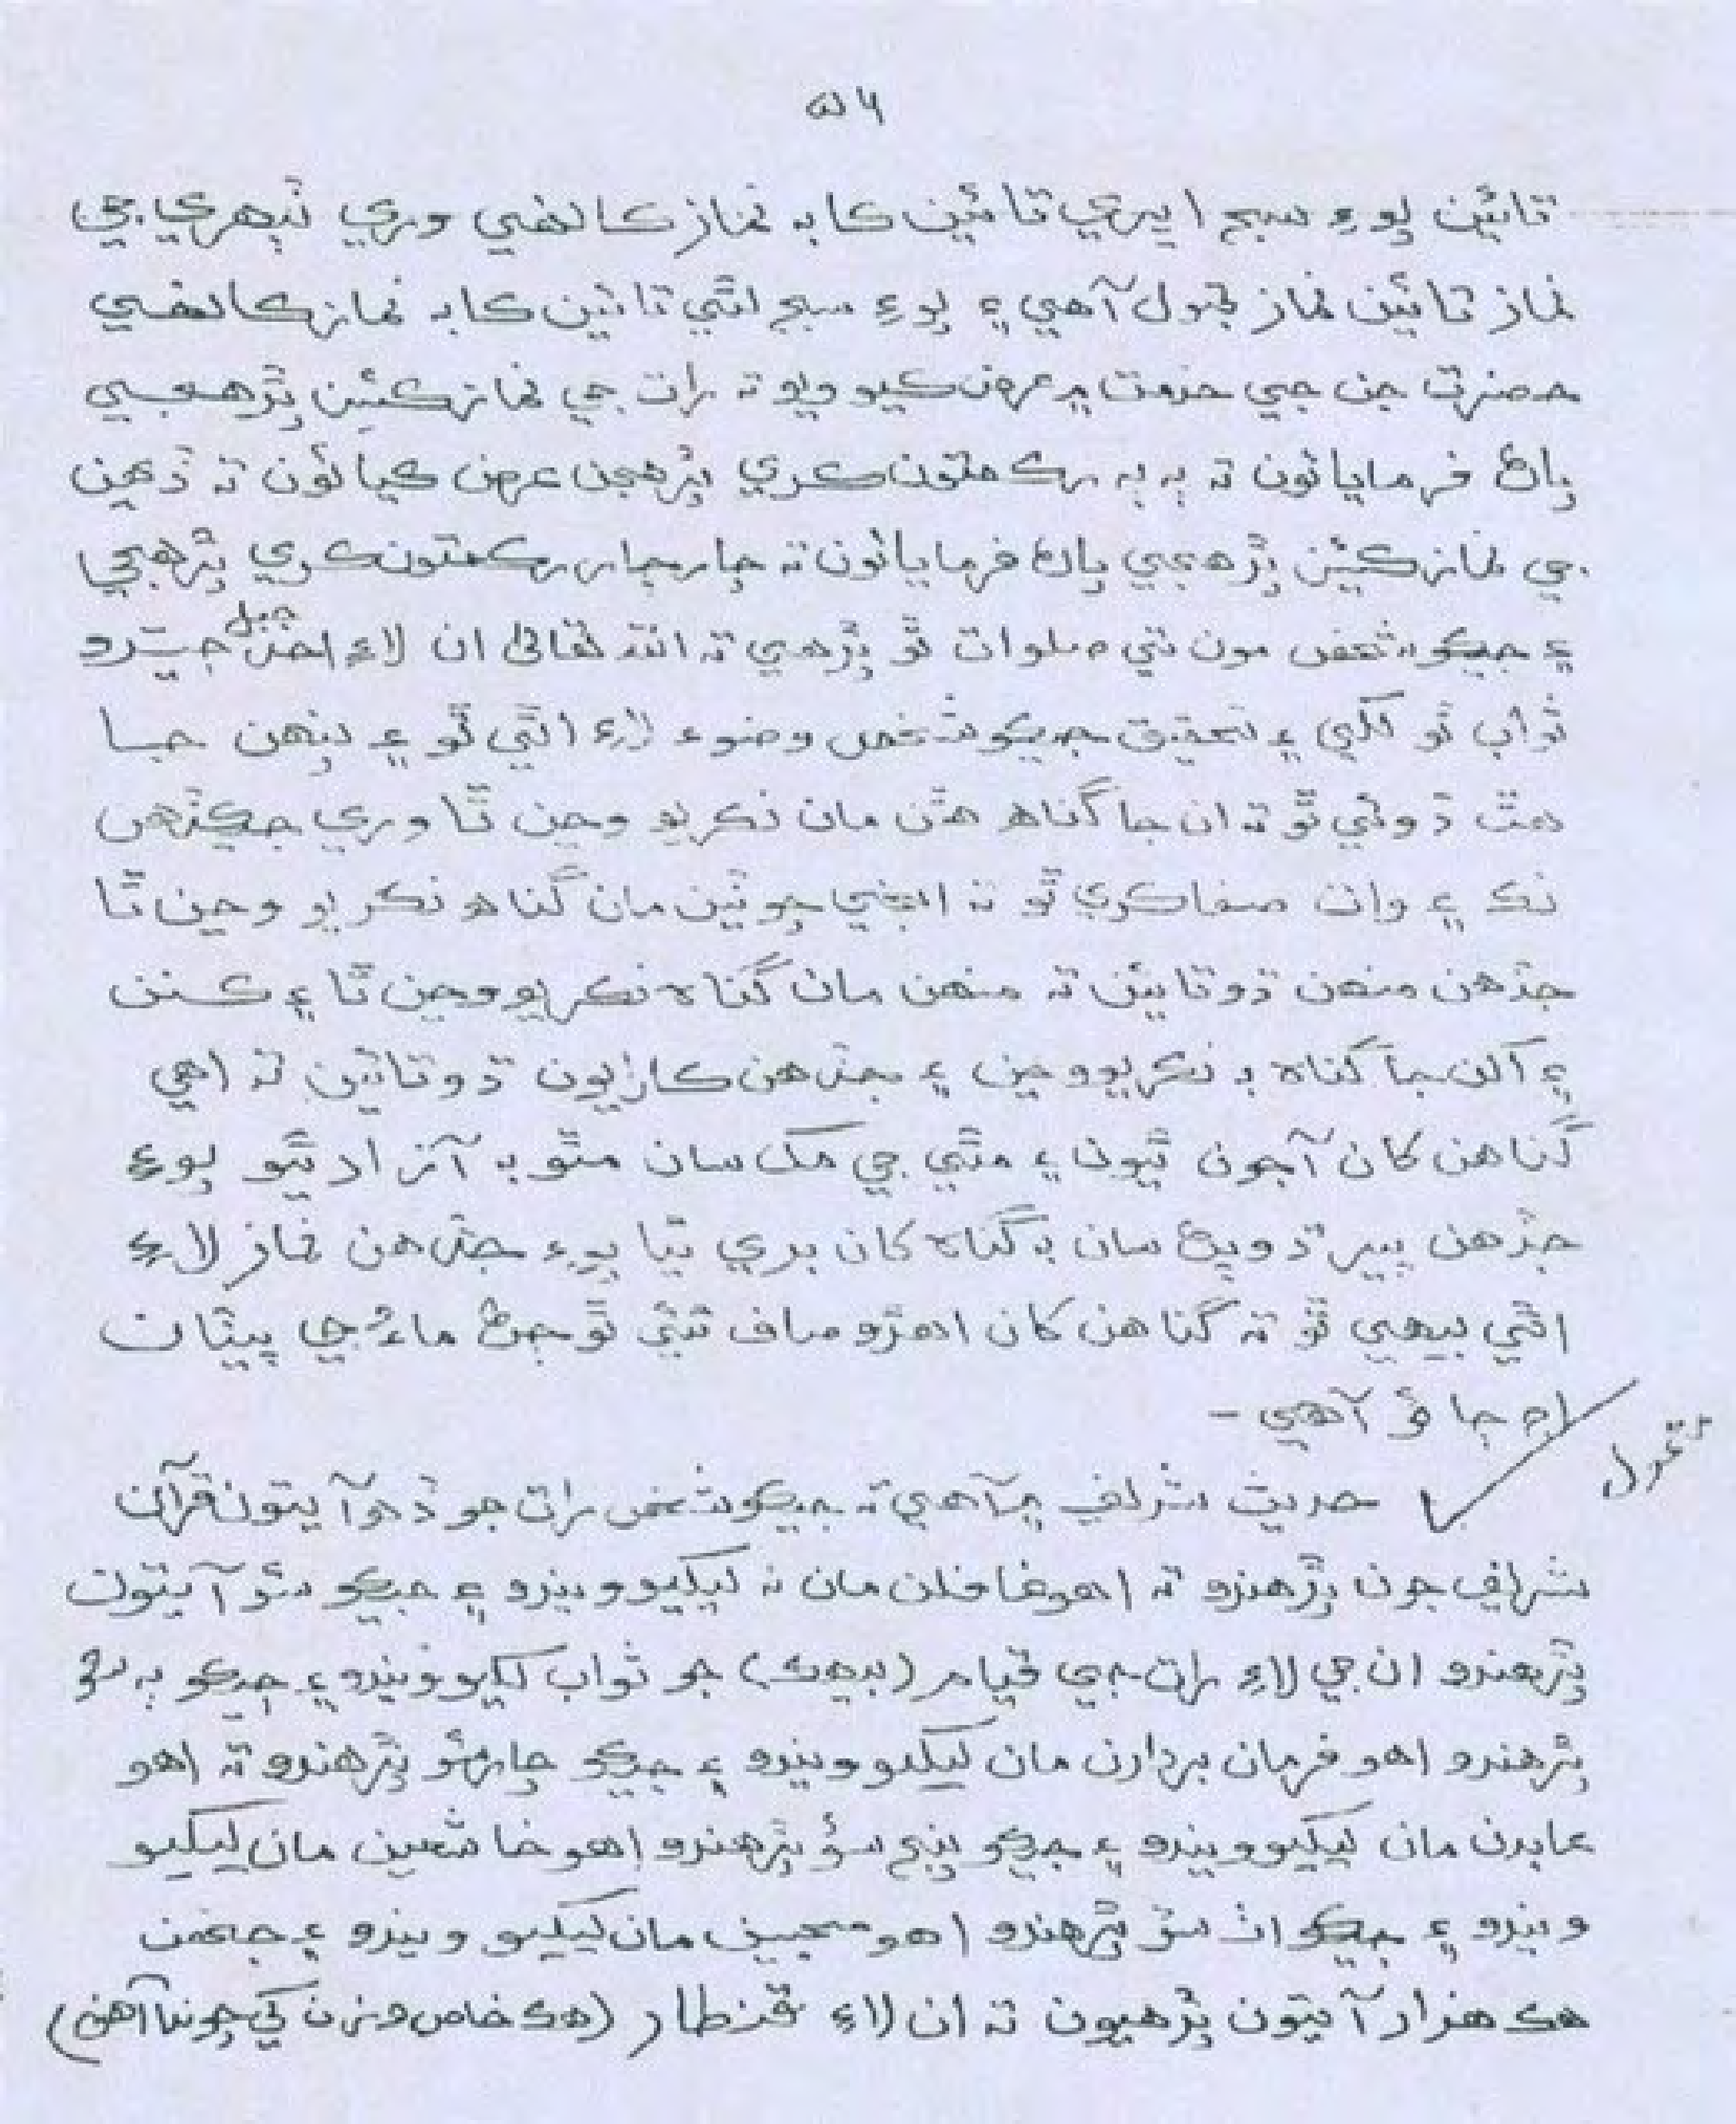 ۵۶
تائين پوءِ سج اڀري تائين ڪابہ نماز ڪانھي وري ٽپھري جي
نماز تائين نماز قبول آھي ۽ پوءِ سج لٿي تائين ڪابہ نماز ڪانھي
حضرت جن جي خدمت ۾ عرض ڪيو ويو تہ رات جي نماز ڪيئن پڙھجي
پاڻ فرمايائون تہ ٻہ ٻہ رڪعتون ڪري پڙھجن عرض ڪيائون تہ ڏھين
جي نماز ڪيئن پڙھجي پاڻ فرمايائون تہ چار چار رڪعتون ڪري پڙھجي
۽ جيڪو شخص مون تي صلوات ٿو پڙھي تہ اللہ تعاليٰ ان لاءِ احد جبل جيترو
ثواب ٿو لکي ۽ تحقيق جيڪو شخص وضوءَ لاءِ اٿي ٿو ۽ ٻنھن جا
ھٿ ڌوئي ٿو تہ ان جا گناھ ھٿن مان نڪريو وڃن ٿا وري جڏھن
نڪ ۽ وات صفا ڪري ٿو تہ انھي چوٽين مان گناھ نڪريو وڃن ٿا
جڏھن منھن ڌوتائين تہ منھن مان گناہ نڪريو وڃن ٿا ۽ ڪنن
۽ اکن جا گناہ بہ نڪريو وڃن ۽ جڏھن ڪارايون ڌوتائين تہ اھي
گناھن کان آجون ٿيون ۽ مٿي جي مک سان مٿو بہ آزاد ٿيو پوءِ
جڏھن پير ڌوئڻ سان بہ گناہ کان بري ٿيا پوءِ جڏھن نماز لاءِ
اٿي بيھي ٿو تہ گناھن کان اھڙو معاف ٿئي ٿو ڄڻ ماءُ جي پيٽان
اڄ ڄائو آھي -
نقول
حديث شريف ۾ آھي تہ جيڪو شخص رات جو ڏھ آيتون قرآن
شريف جون پڙھندو تہ اھو غافلن مان نہ ليکيو ويندو ۽ جيڪو سئو آيتون
پڙھندو ان جي لاءِ رات جي قيام (بيھڪ) جو ثواب لکيو ويندو ۽ جيڪو ٻہ سئو
پڙھندو اھو فرمان بردارن مان ليکيو ويندو ۽ جيڪو چار سئو پڙھندو تہ اھو
عابدن مان ليکيو ويندو ۽ جيڪو پنج سؤ پڙھندو اھو خاشعين مان ليکيو
ويندو ۽ جيڪو اٺ سؤ پڙھندو اھو مجيبن مان ليکيو ويندو ۽ جنھن
ھڪ ھزار آيتون پڙھيون تہ ان لاءِ قنطار (ھڪ خاص وزن کي چوندا آھن)